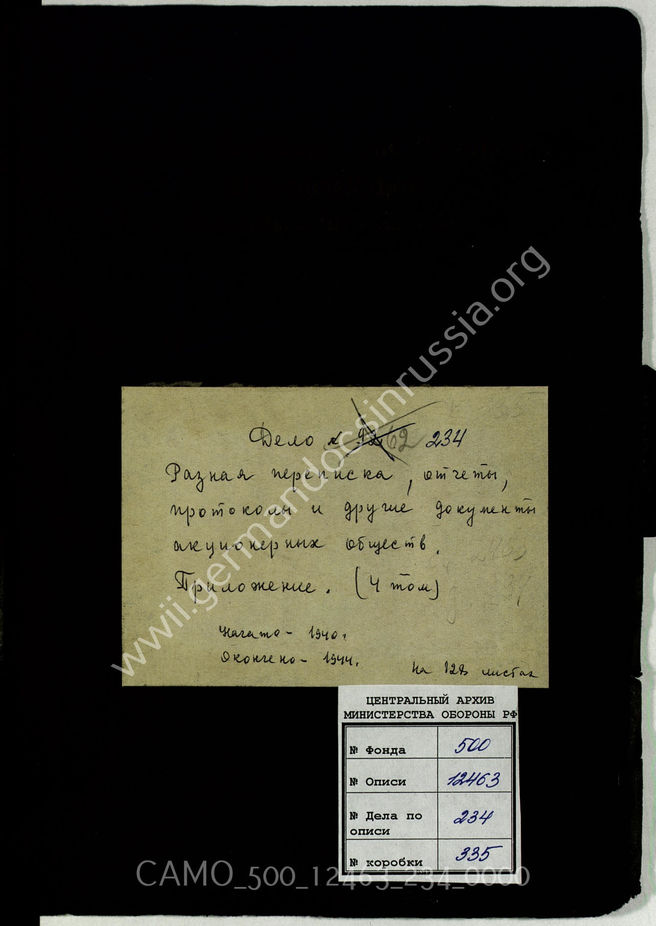 Дело № 62 234
Разная переписка, отчеты,
протоколы и другие документы
акционерных обществ.
Приложение. (4 том)
Начато - 1940 г.
Окончено - 1944 г.
На 128 листах
ЦЕНТРАЛЬНЫЙ АРХИВ
МИНИСТЕРСТВА ОБОРОНЫ РФ
№ Фонда 500
№ Описи 12463
№ Дела по описи 234
№ коробки 335
CAMO_500_12463_234_0000
www.germandocsinrussia.org